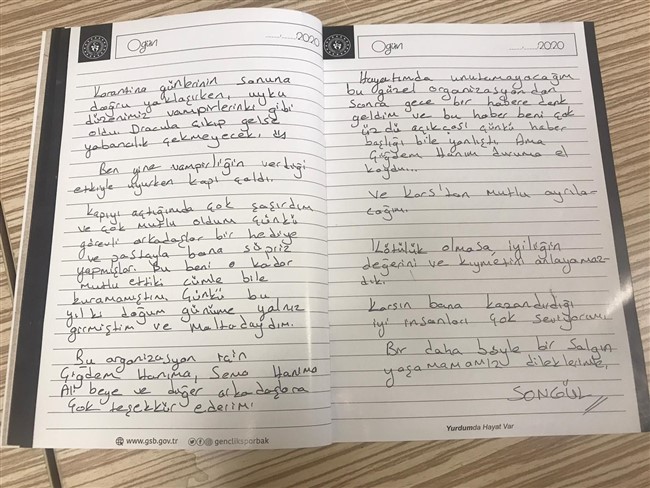 Ogün
.....2020
Karantina günlerinin sonuna
doğru yaklaşırken, uyku
düzenimiz vampirlerinki gibi
oldu. Dracula çıkıp gelse
yabancılık çekmeyecek.
Ben yine vampirliğin verdiği
etkiyle uyurken kapı çaldı.
Kapıyı açtığımda çok şaşırdım
ve çok mutlu oldum. Çünkü
görevli arkadaşlar bir hediye
ve pastayla bana süpriz
yapmışlar. Bu beni o kadar
mutlu etti ki cümle bile
kuramamıştım. Çünkü bu
yıl ki doğum günüme yalnız
girmiştim ve Maltadaydım.
Bu organizasyon için
Çiğdem Hanıma, Sema Hanıma
Ali beye ve diğer arkadaşlara
çok teşekkür ederim.
www.gsb.gov.tr
gencliksporbak
Ogün
.....2020
Hayatımda unutamayacağım
bu güzel organizasyondan
sonra gece bir habere denk
geldim ve bu haber beni çok
üzdü açıkçası çünkü haber
başlığı bile yanlıştı. Ama
Çiğdem Hanım duruma el
koydu...
Ve Kars'tan mutlu ayrıla-
cağım.
Kötülük olmasa, iyiliğin
değerini ve kıymetini anlayamaz-
dık.
Karsın bana kazandırdığı
iyi insanları çok seviyorum.
Bir daha böyle bir salgın
yaşamamamız dileklerimle,
SONGÜL
Yurdumda Hayat Var